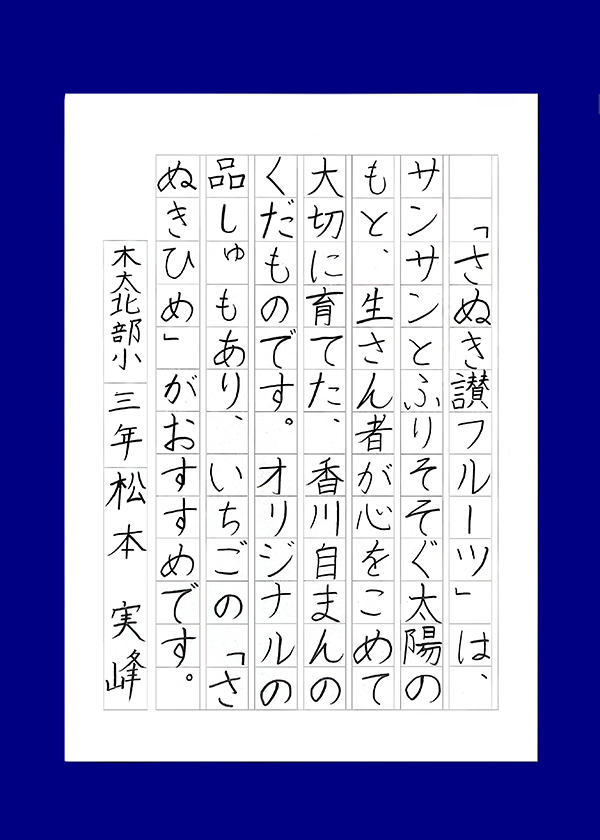 「さぬき讃フルーツ」は、
サンサンとふりそそぐ太陽の
もと、生さん者が心をこめて
大切に育てた、香川自まんの
くだものです。オリジナルの
品しゅもあり、いちごの「さ
ぬきひめ」がおすすめです。
木太北部小 三年 松本 実峰